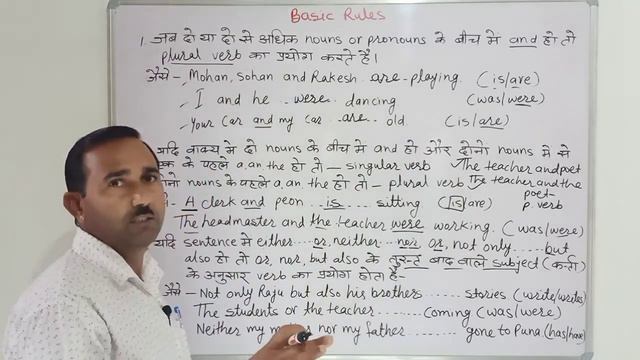 Basic Rules
1. जब दो या दो से अधिक nouns or pronouns के बीच मे and हो तो
plural verb का प्रयोग करते है।
जैसे - Mohan, Sohan and Rakesh are playing. (is/are)
I and he .. were .. dancing (was/were)
Your car and my car .. are .. old. (is/are)
यदि वाक्य मे दो nouns के बीच मे and हो और दोनो nouns मे से
एक के पहले a, an the हो तो - singular verb The teacher and poet
दोनो nouns के पहले a, an the हो तो - plural verb The teacher and the
poet-
p. verb
- A clerk and peon .. is .. sitting (is/are)
The headmaster and the teacher were working. (was/were)
यदि sentence मे either .. or, neither .. nor or, not only .... but
also हो तो or, nor, but also के तुरन्त बाद वाले subject (कर्ता)
के अनुसार verb का प्रयोग होता है-
जैसे - Not only Raju but also his brothers ....... stories (write/writes)
The students or the teacher ....... coming (was/were)
Neither my nor my father ....... gone to Puna (has/have)